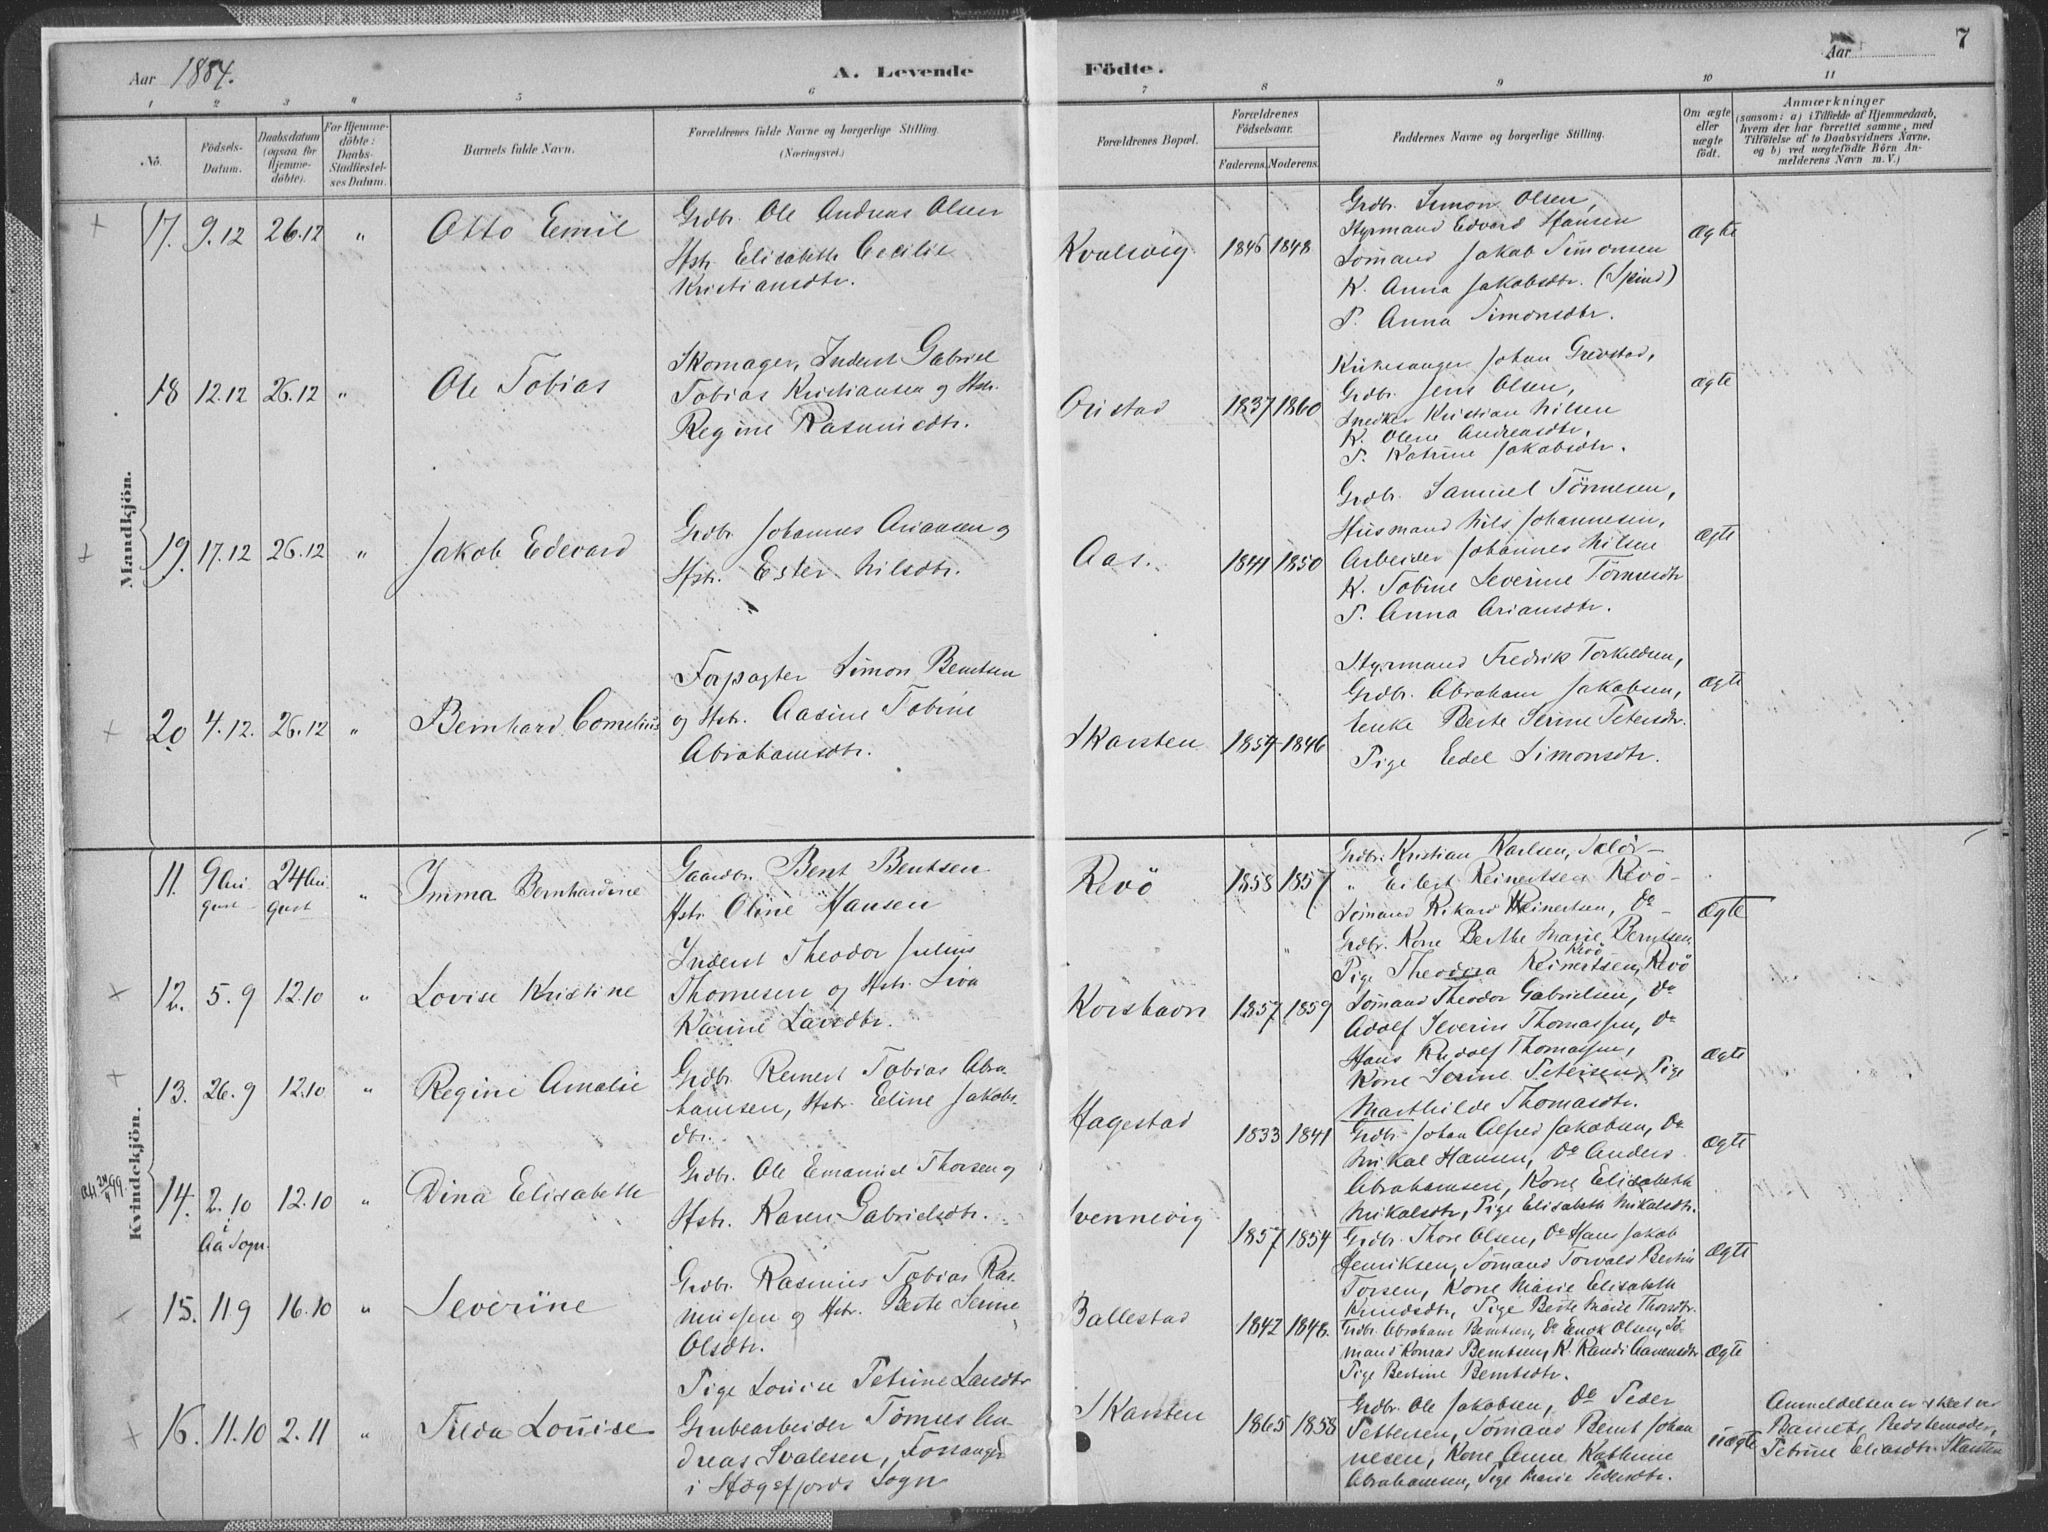 Aar 1884.
A. Levende Födte.
Aar 7
1 2 3 4 5 6 7 8 9 10 11
No.
Födsels-Datum.
Daabsdatum (ogsaa for Hjemme-döbte).
For Hjemme-döbte: Daabs-Stadfæstel-ses Datum.
Barnets fulde Navn.
Forældrenes fulde Navne og borgerlige Stilling.
(Næringsvei.)
Forældrenes Bopæl.
Forældrenes Födselsaar.
Faderens. Moderens.
Faddernes Navne og borgerlige Stilling.
Om ægte eller uægte födt.
Anmærkninger
(saasom: a) i Tilfælde af Hjemmedaab,
hvem der har forrettet samme, med
Tilföielse af to Daabsvidners Navne.
og b) ved uægtefödte Börn An-
melderens Navn m. V.)
Mandkjön.
17. 9.12 26.12 " Otto Emil
Grdbr. Ole Andreas Olsen
Hstr. Elisabeth Cecilie
Kristiansdtr.
Kvalsvig 1846 1848
Grdbr. Simon Olsen,
Styrmand Edvard Hansen
Sömand Jakob Simonsen
K. Anna Jakobsdtr. (Spind)
P. Anna Simonsdtr.
Ægte
18 12.12 26.12 " Ole Tobias
Skomager, Inderst Gabriel
Tobias Kristiansen og Hstr.
Regine Rasmusdtr.
Öristad 1837 1860
Kirkesanger Johan Grevstad,
Grdbr. Jens Olsen,
Snedker Kristian Nilsen
K. Olene Andreasdtr.
P. Katrine Jakobsdtr.
Ægte
19. 17.12 26.12 " Jakob Edevard
Grdbr Johannes Ariansen og
Hstr. Ester Nilsdtr.
Aas. 1841 1850
Grdbr. Samuel Tönnesen,
Husmand Nils Johannesen,
Arbeider Johannes Nilsen
K. Tobine Severine Tönnesdtr
P. Anna Ariansdtr.
Ægte
20 4.12. 26.12 " Bernhard Cornelius
Forpagter Simon Berntsen
og Hstr. Aasine Tobine
Abrahamsdtr.
Skarsten 1854 1846
Styrmand Fredrik Torkeldsen,
Grdbr. Abraham Jakobsen,
Enke Berte Serine Petersdtr.
Pige Edel Simonsdtr.
Ægte
Kvindekjön.
11. 9 August 24 August " Imma Bernhardine
Gaardbr. Bent Bentsen
Hstr Oline Hansen
Revö 1858 1857
Grdbr. Kristian Karlsen, Selör
" Eilert Reinertsen Revö
Sömand Rikard Reinertsen, Do
Grdbr. Kone Berthe Marie Berntsen
Revö
Pige Theodora Reinertsen, Revö
Ægte
12. 5.9 12.10 " Lovise Kristine
Inderst Theodor Julius
Thomesen og Hstr. Siva
Karine Larsdtr.
Korshavn 1857 1859
Sömand Theodor Gabrielsen, Do
Adolf Severin Thomassen, Do
Hans Rudolf Thomassen,
Kone Serine Petersen, Pige
Marthilde Thomasdtr.
Ægte
13. 26.9 12.10 " Regine Amalie
Grdbr Reinert Tobias Abra-
hamsen, Hstr. Eline Jakobs-
dtr.
Hagestad 1833 1841
Grdbr. Johan Alfred Jakobsen, Do
Mikal Hansen, Do Anders
Abrahamsen, Kone Elisabeth
Mikalsdtr, Pige Elisabeth Mikalsdtr.
Ægte
14. 2.10 i Aa Sogn. 12.10 " Dina Elisabeth
Grdbr. Ole Emanuel Thorsen og
Hstr. Karen Gabrielsdtr.
Svennevig 1857 1854
Grdbr. Thore Olsen, Do Hans Jakob
Henriksen, Sömand Torvald Bertin
Torsen, Kone Marie Elisabeth
Knudsdtr, Pige Berte Marie Thorsdtr.
Ægte
15. 11 9 16.10 " Severine
Grdbr. Rasmus Tobias Ras-
mussen og Hstr. Berte Serine
Olsdtr.
Ballestad 1842 1848.
Grdbr. Abraham Berntsen, Do Enok Olsen, Sö-
mand Konrad Berntsen, K. Randi Aanensdtr
Pige Bertine Berntsdtr.
Ægte
16. 11.10 2.11 " Tilda Louise
Pige Louise Petrine Larsdtr
Grubearbeider Tönnes An-
dreas Svalesen, Fossanger
i Högsfjords Sogn
Skarsten 1865 1858
Grdbr. Ole Jakobsen, Do Peder
Pettersen, Sömand Bernt Johan
nesen, Kone Anne Kathrine
Abrahamsen, Pige Marie Pedersdtr.
uægte
Anmeldelsen er skeet ved
Barnets Bedstemoder,
Petrine Eliasdtr. Skarsten